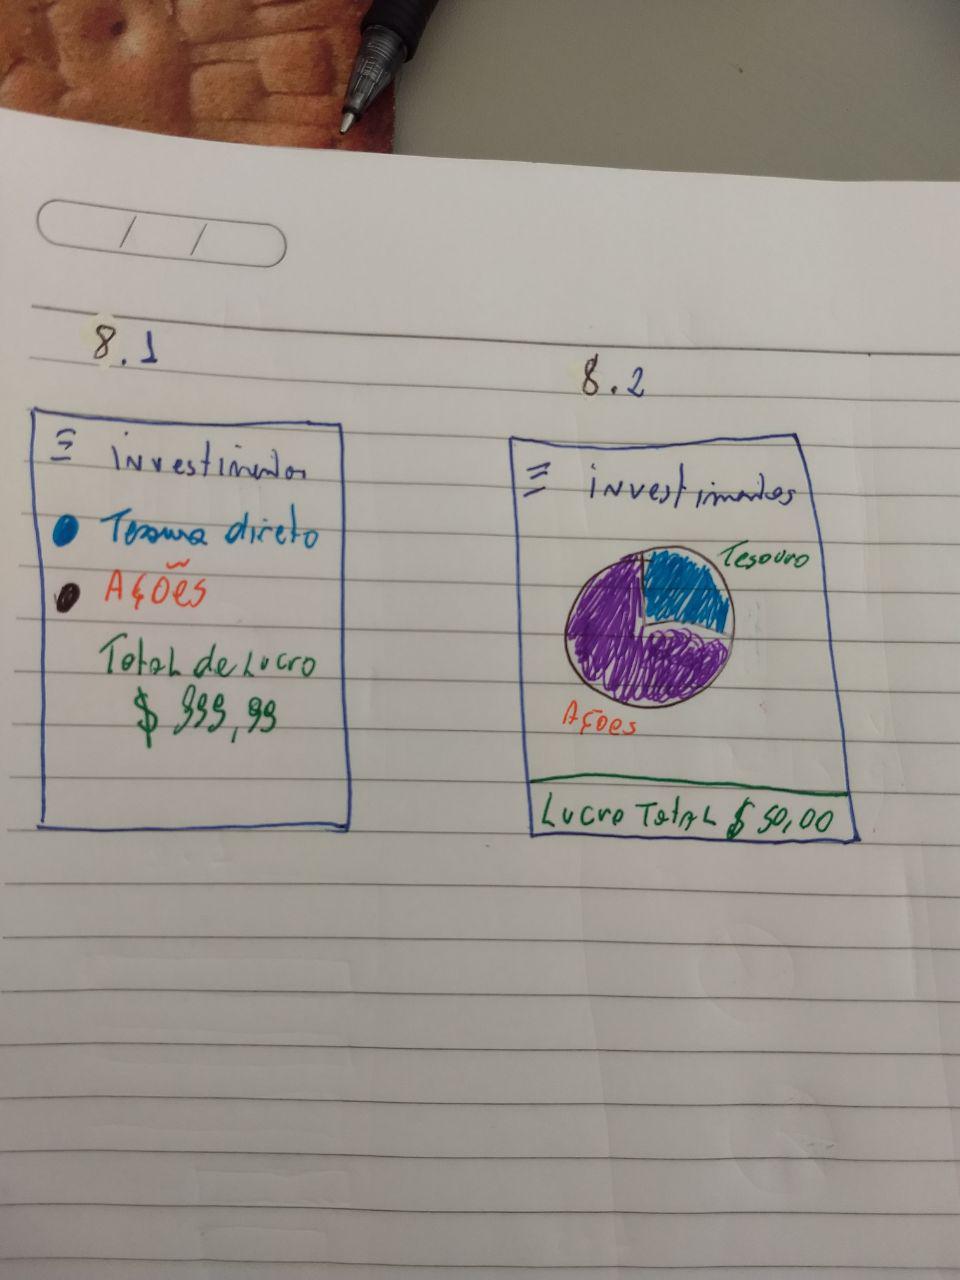 8.1
investimentos
Tesouro direto
Ações
Total de Lucro
$ 999,99
8.2
investimentos
Tesouro
Ações
Lucro Total $ 50,00